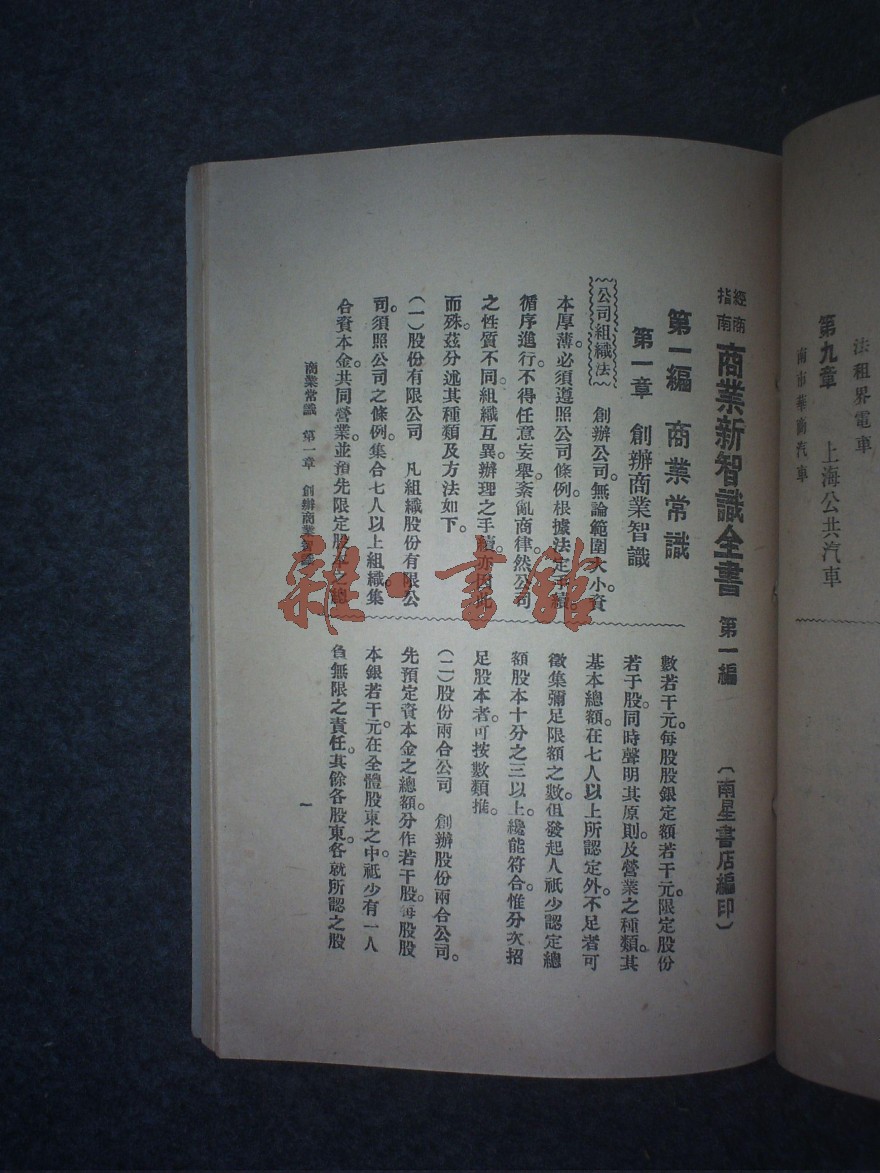 法租界電車
第九章　上海公共汽車
南市華商汽車
經商指南 商業新智識全書　第一編　（南星書店編印）
第一編　商業常識
第一章　創辦商業智識
公司組織法　創辦公司。無論範圍大小。資
本厚薄。必須遵照公司條例。根據法定手續。
循序進行。不得任意妄舉。紊亂商律。然公司
之性質不同。組織互異。辦理之手續。亦因此
而殊。茲分述其種類及方法如下。
（一）股份有限公司　凡組織股份有限公
司。須照公司之條例。集合七人以上組織。集
合資本金。共同營業。並預先限定股本之總
數若干元。每股股銀定額若干元。限定股份
若干股。同時聲明其原則。及營業之種類。其
基本總額。在七人以上所認定外。不足者可
徵集彌足限額之數。但發起人祇少認定總
額股本十分之三以上。纔能符合。惟分次招
足股本者。可按數類推。
（二）股份兩合公司　創辦股份兩合公司。
先預定資本金之總額。分作若干股。每股股
本銀若干元。在全體股東之中。祇少有一人
負無限之責任。其餘各股東。各就所認之股
商業常識　第一章　創辦商業智識
一
雜·書館